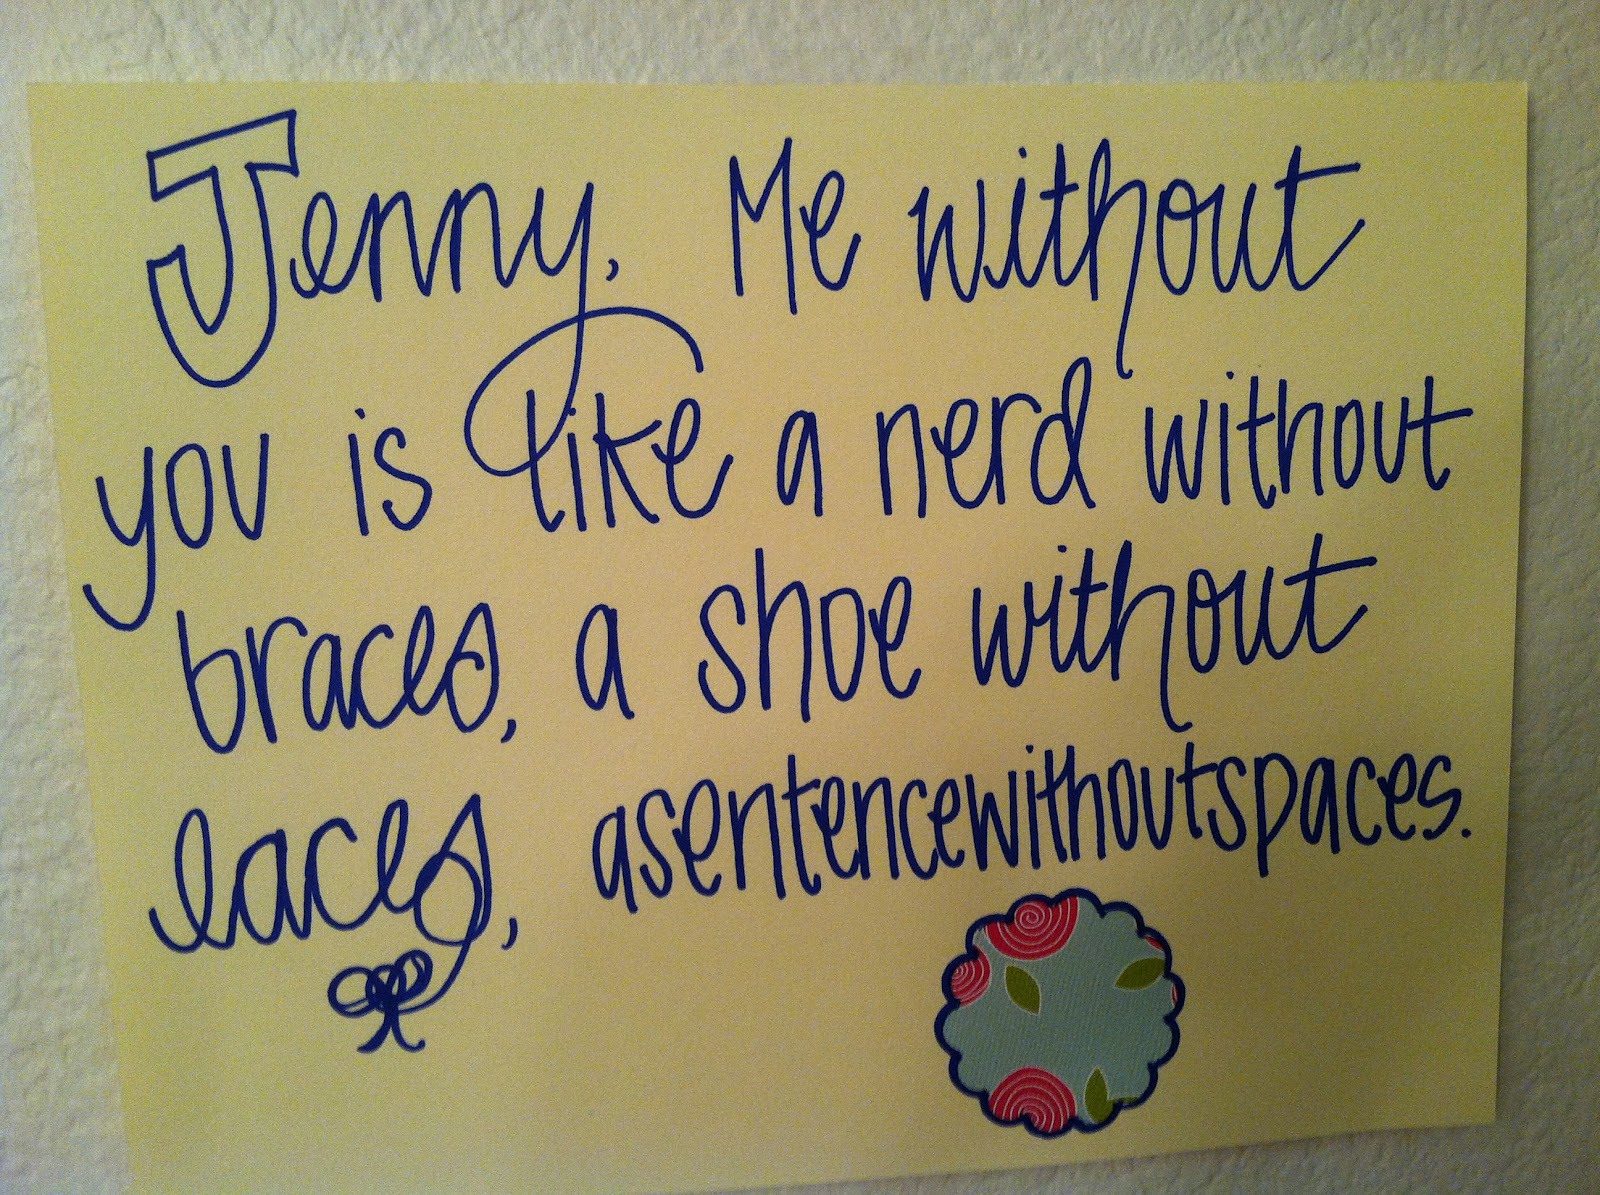 Jenny, Me without
you is like a nerd without
braces, a shoe without
laces, asentencewithoutspaces.